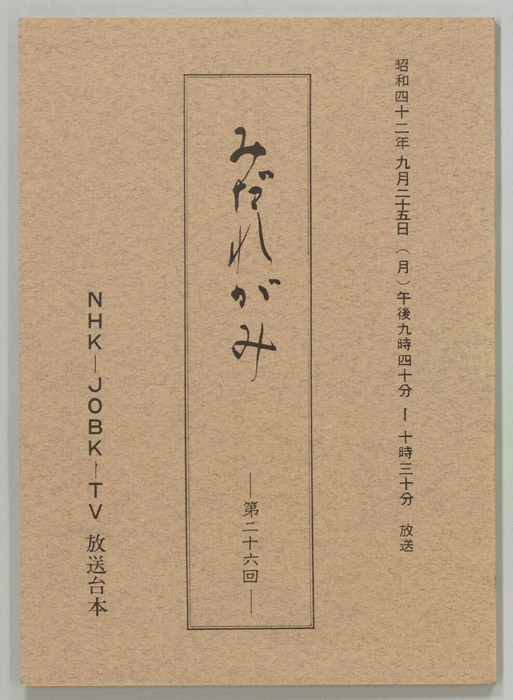 昭和四十二年九月二十五日（月）午後九時四十分ー十時三十分 放送
みだれがみ
―第二十六回―
NHK―JOBK―TV 放送台本